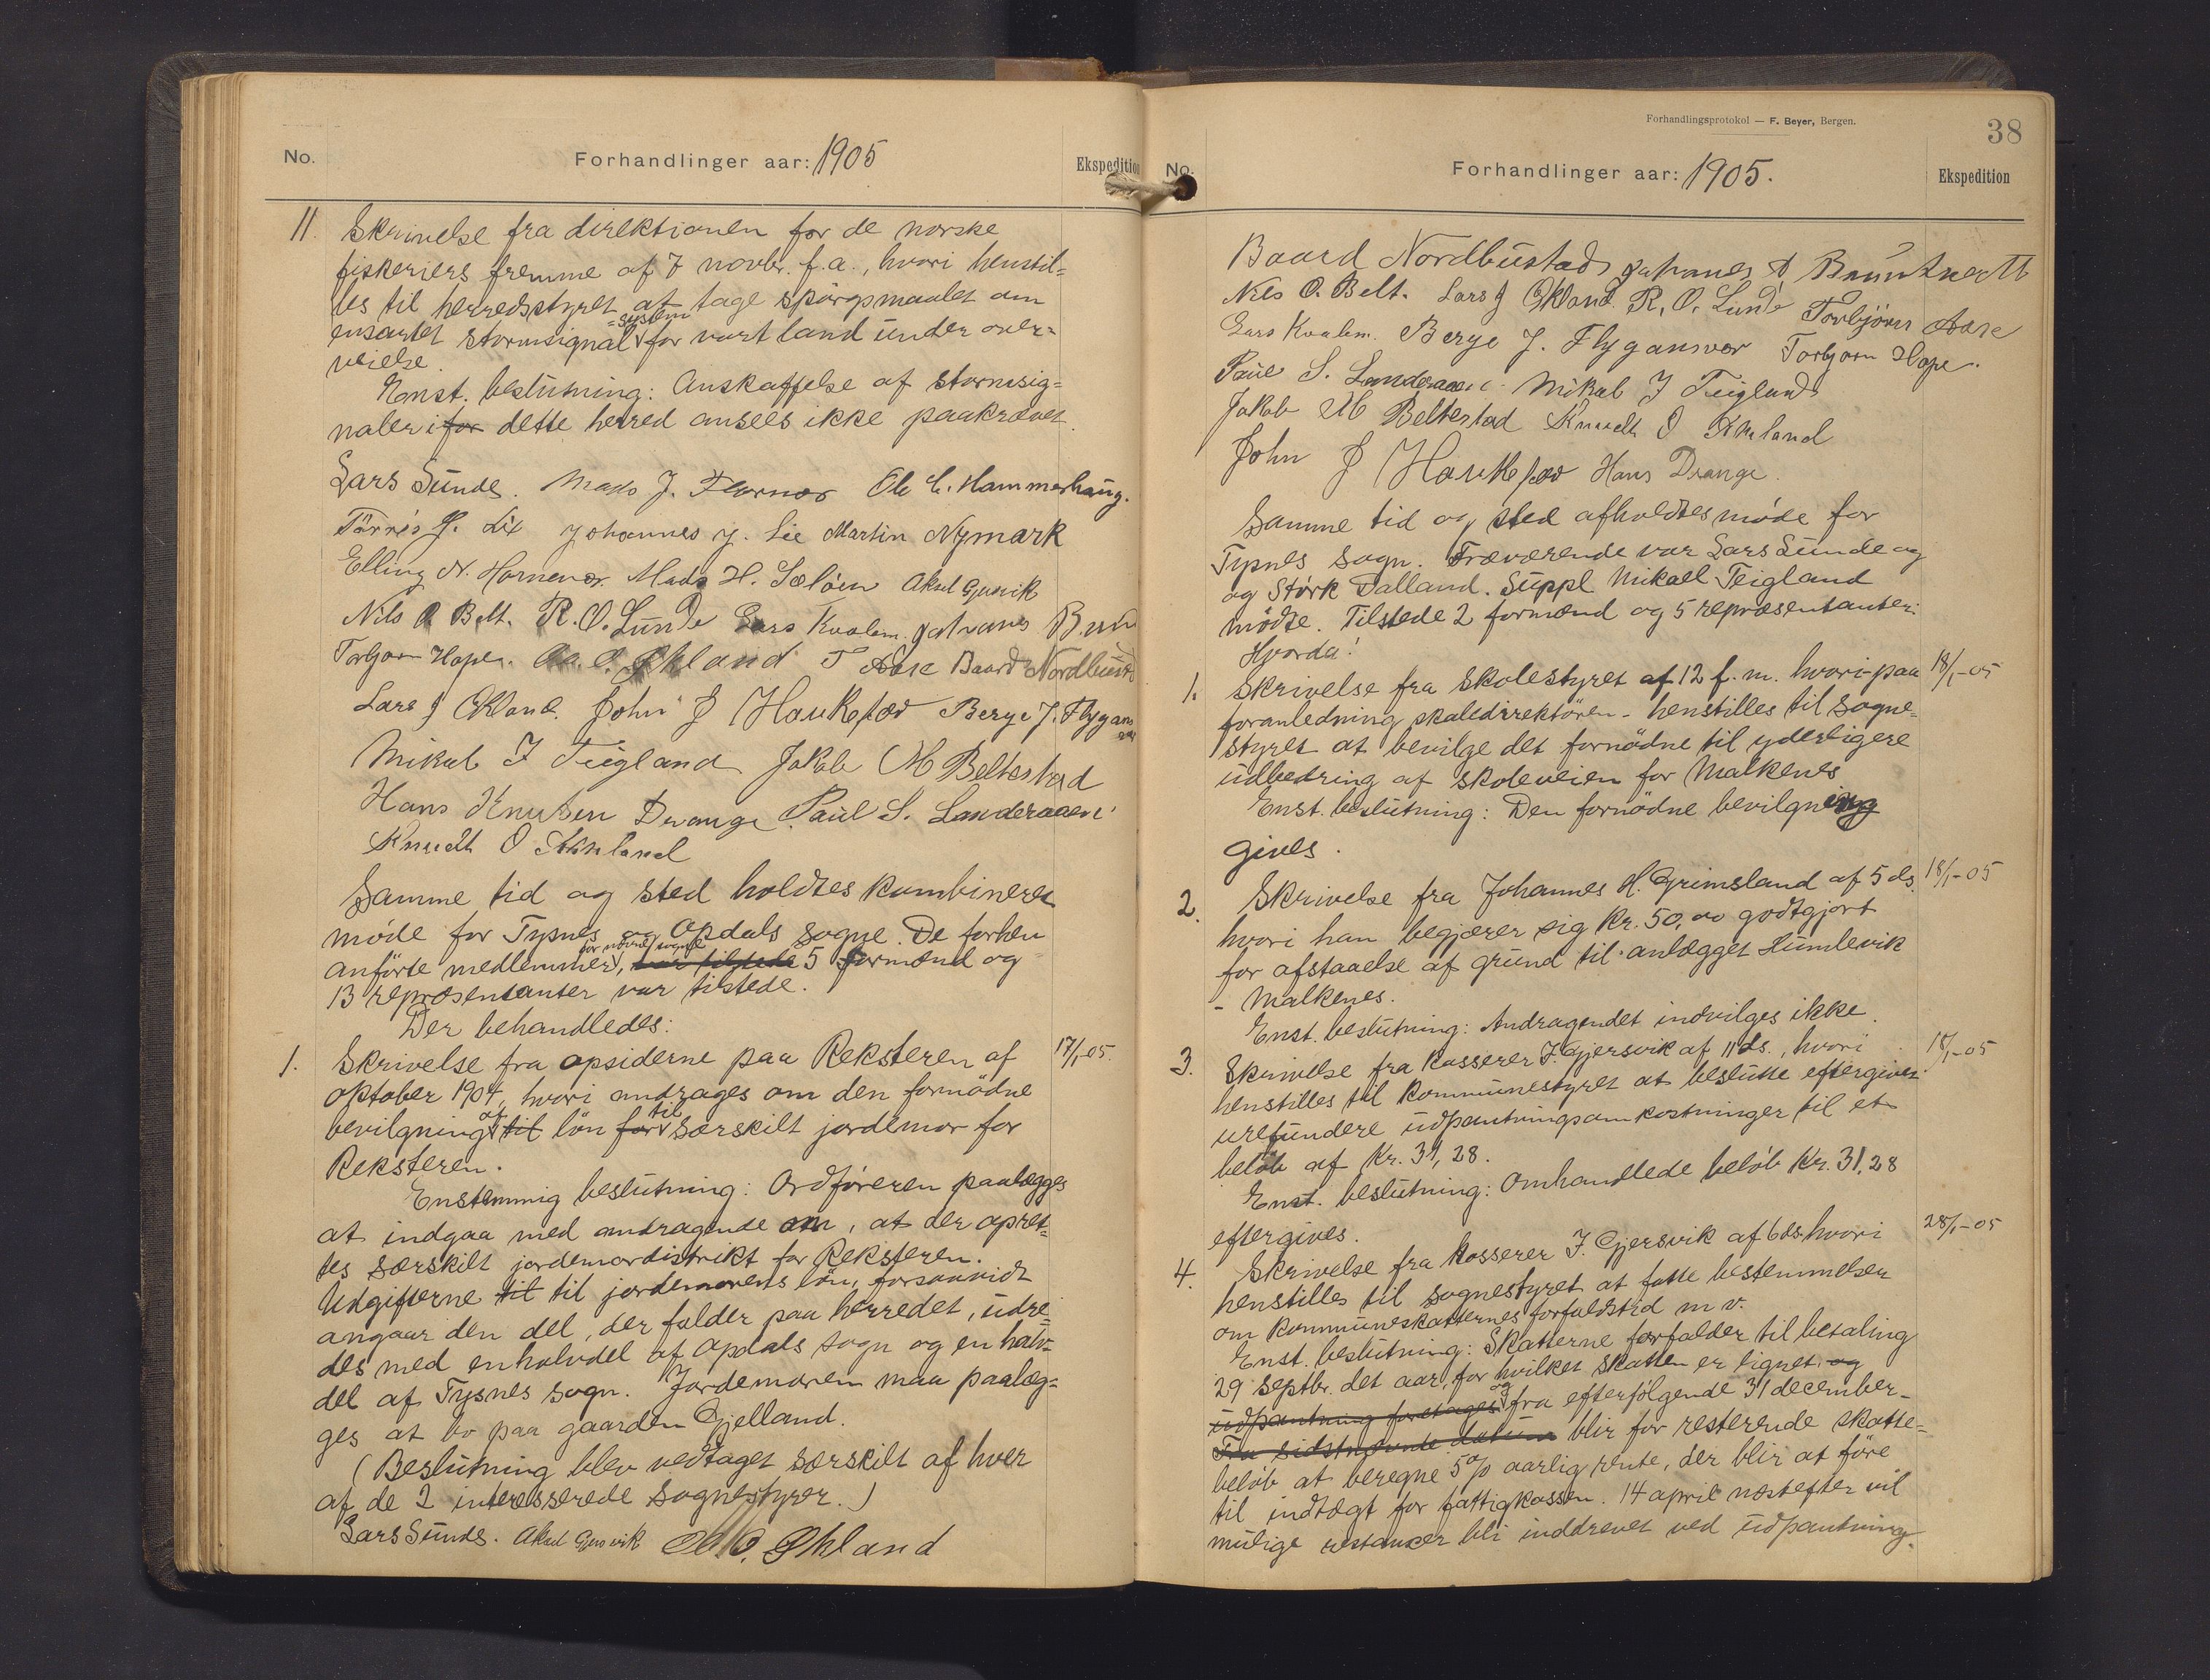 No. Forhandlinger aar: 1905 Ekspedition
11. Skrivelse fra direktionen for de norske
fiskeriers fremme af 7 novbr. f.a., hvori henstil=
les til herredsstyret at tage spörgsmaalet om
ensartet stormsignal =system for vort land under over=
veielse.
Enst. beslutning: Anskaffelse af stormsig=
naler i for dette herred ansees ikke paakrævet.
Lars Sunde. Mads J. Flornes Ole E. Hammerhaug.
Törris J. Lie Johannes J. Lie Martin Nymark
Elling N. Hornenes. Mads H. Sæløen Aksel Gjersvik
Nils O. Belt. R. O. Lunde Lars Kvalem. Johannes
Torbjørn Hope. Ole O. Økland T Aase Baard Nordbustad
Lars J Økland. John J Haukefær Berge J. Flygans
vær
Mikal J Teigland Jakob M Beltestad
Hans Knutsen Drange Paul S. Landeraaen
Knudt O
Samme tid og sted holdtes kombineret
möde for Tysnes og Opdals sogne. De forhen
anförte medlemmer, for nævnte sogne var tilstede 5 formænd og
13 repræsentanter var tilstede.
Der behandledes:
1. Skrivelse fra opsiderne paa Reksteren af 17/1-05.
oktober 1904, hvori andrages om den fornödne
bevilgning af til lön for til særskilt jordemor for
Reksteren.
Enstemmig beslutning: Ordföreren paalægges
at indgaa med andragende om, at der opret=
tes særskilt jordemordistrikt for Reksteren.
Udgifterne til til jordemorens lön, forsaavidt
angaar den del, der falder paa herredet, udre=
des med en halvdel af Opdals sogn og en halv=
del af Tysnes sogn. Jordemoren maa paalæg=
ges at bo paa gaarden Gjelland.
(Beslutning blev vedtaget særskilt af hver
af de 2 interesserede sognestyrer.)
Lars Sunde. Aksel Gjersvik Ole O. Økland
Forhandlingsprotokol — F. Beyer, Bergen.
38
No. Forhandlinger aar: 1905. Ekspedition
Baard Nordbustad Johannes
Nils O. Belt. Lars J Økland. R. O. Lunde Torbjörn Aase
Lars Kvalem. Berge J. Flygansvær Torbjørn Hope.
Paul S. Landeraaen Mikal J Teigland
Jakob M Beltestad Knudt O
John J Haukefær Hans Drange
Samme tid og sted afholdtes möde for
Tysnes sogn. Fraværende var Lars Sunde og
og Störk Dalland. Suppl. Mikael Teigland
mödte. Tilstede 2 formænd og 5 repræsentanter.
Hvorda:
1. Skrivelse fra Skolestyret af 12 f. m. hvori - paa 18/1-05
foranledning skoledirektören - henstilles til Sogne=
styret at bevilge det fornödne til yderligere
udbedring af skoleveien for Malkenes
Enst. beslutning: Den fornödne bevilgning
gives.
2. Skrivelse fra Johannes H. Grimsland af 5 ds. 18/1-05
hvori han begjærer sig Kr. 50,00 godtgjort
for afstaaelse af grund til anlægget Humlevik
- Malkenes.
Enst. beslutning: Andragendet indvilges ikke.
3. Skrivelse fra kasserer J. Gjersvik af 11 ds., hvori 18/1-05
henstilles til kommunestyret at beslutte eftergivet
urefundere udpantningsomkostninger til et
belöb af Kr. 31,28.
Enst. beslutning: Omhandlede belöb Kr. 31,28
eftergives.
4. Skrivelse fra kasserer J. Gjersvik af 6 ds. hvori 28/1-05
henstilles til sognestyret at fatte bestemmelser
om kommuneskatternes forfaldstid m v.
Enst. beslutning: Skatterne forfalder til betaling
29 septbr. det aar, for hvilket skatten er lignet og
udpantning foretages og fra efterfölgende 31 december-
Fra sidstnævnte datum blir for resterende skatte=
belöb at beregne 5 % aarlig rente, der blir at före
til indtægt for fattigkassen. 14 april næstefter vil
mulige restancer bli inddrevet ved udpantning.